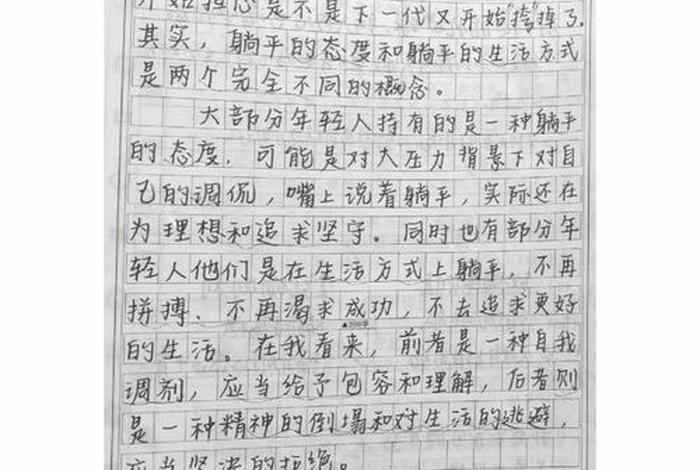 开始担忧是不是下一代又开始"垮"掉了.
其实，躺平的态度和躺平的生活方式
是两个完全不同的概念。
大部分年轻人持有的是一种躺平
的态度，可能是对大压力背景下对自
己的调侃，嘴上说着躺平，实际还在
为理想和追求坚守。同时也有部分年
轻人他们是在生活方式上躺平，不再
拼搏、不再渴求成功，不去追求更好
的生活。在我看来，前者是一种自我
调剂，应当给予包容和理解，后者则
是一种精神的倒塌和对生活的逃避，
应当坚决的拒绝。